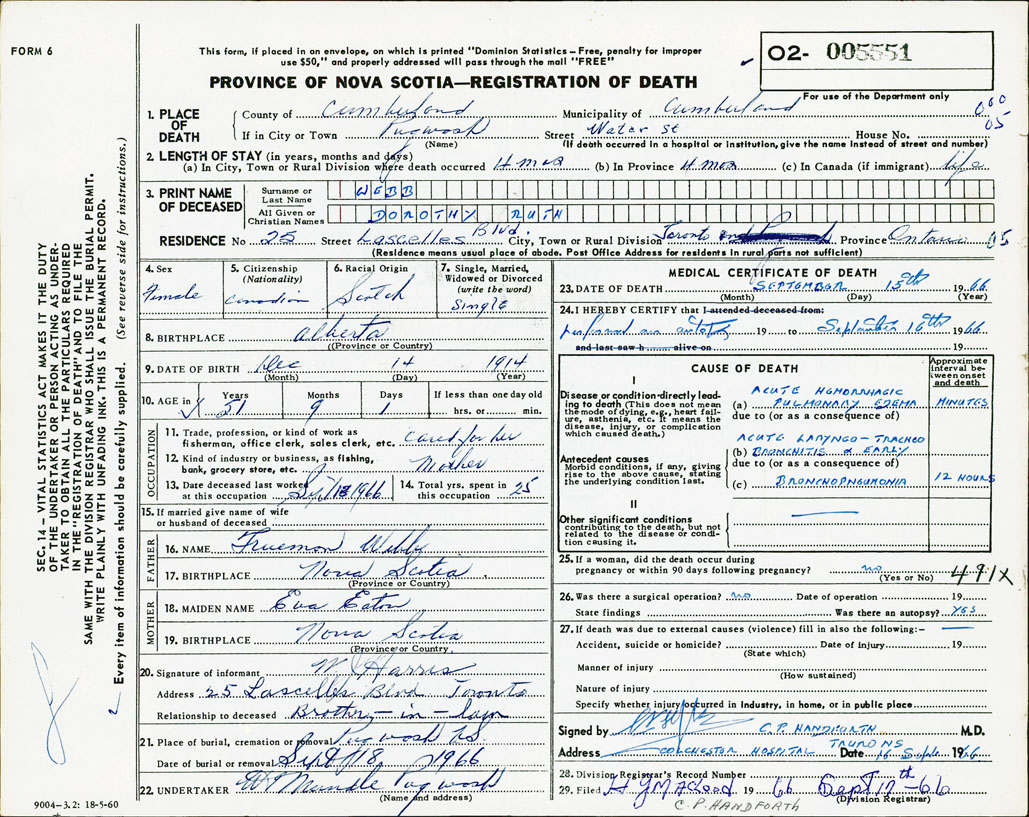 FORM 6
This form, if placed in an envelope, on which is printed "Dominion Statistics – Free, penalty for improper
use $50," and properly addressed will pass through the mail "FREE"
PROVINCE OF NOVA SCOTIA—REGISTRATION OF DEATH
O2- 005551
For use of the Department only
1. PLACE OF DEATH
County of Cumberland Municipality of Cumberland
If in City or Town Pugwash Street Water St House No.
(Name) (If death occurred in a hospital or institution, give the name instead of street and number)
05
2. LENGTH OF STAY (in years, months and days)
(a) In City, Town or Rural Division where death occurred 4 mos (b) In Province 4 mos (c) In Canada (if immigrant) life
3. PRINT NAME OF DECEASED
Surname or Last Name WEBB
All Given or Christian Names DOROTHY RUTH
RESIDENCE No 25 Street Lascelles Blvd. City, Town or Rural Division Toronto Province Ontario 05
(Residence means usual place of abode. Post Office Address for residents in rural parts not sufficient)
4. Sex Female
5. Citizenship (Nationality) Canadian
6. Racial Origin Scotch
7. Single, Married, Widowed or Divorced (write the word) Single
8. BIRTHPLACE Alberta
((Province or Country)
9. DATE OF BIRTH Dec 14 1914
(Month) (Day) (Year)
10. AGE in Years 51 Months 9 Days 1 If less than one day old hrs. or min.
OCCUPATION
11. Trade, profession, or kind of work as fisherman, office clerk, sales clerk, etc. Cared for her
12. Kind of industry or business, as fishing, bank, grocery store, etc. Mother
13. Date deceased last worked at this occupation Sept 1966
14. Total yrs. spent in this occupation 25
15. If married give name of wife or husband of deceased
FATHER
16. NAME Trueman Webb
17. BIRTHPLACE Nova Scotia
(Province or Country)
MOTHER
18. MAIDEN NAME Eva Eaton
19. BIRTHPLACE Nova Scotia
(Province or Country
20. Signature of informant W Harris
Address 25 Lascelles Blvd Toronto
Relationship to deceased Brother-in-law
21. Place of burial, cremation or removal Pugwash NS
Date of burial or removal Sept 18, 1966
22. UNDERTAKER Pugwash
(Name and address)
9004-3.2: 18-5-60
MEDICAL CERTIFICATE OF DEATH
23. DATE OF DEATH SEPTEMBER 15th 1966
(Month) (Day) (Year)
24. I HEREBY CERTIFY that I attended deceased from:
performed an autopsy 19 to September 16th 1966
and last saw h alive on 19
CAUSE OF DEATH
Approximate interval between onset and death
I
Disease or condition directly leading to death (This does not mean the mode of dying, e.g., heart failure, asthenia, etc. It means the disease, injury, or complication which caused death.)
(a) ACUTE HEMORRHAGIC PULMONARY EDEMA MINUTES
due to (or as a consequence of)
Antecedent causes
Morbid conditions, if any, giving rise to the above cause, stating the underlying condition last.
(b) ACUTE LARYNGO-TRACHEO BRONCHITIS & EARLY
due to (or as a consequence of)
(c) BRONCHOPNEUMONIA 12 HOURS
II
Other significant conditions
contributing to the death, but not related to the disease or condition causing it.
25. If a woman, did the death occur during
pregnancy or within 90 days following pregnancy? no
(Yes or No)
491X
26. Was there a surgical operation? no Date of operation 19
State findings Was there an autopsy? YES
27. If death was due to external causes (violence) fill in also the following:–
Accident, suicide or homicide? Date of injury 19
(State which)
Manner of injury
(How sustained)
Nature of injury
Specify whether injury occurred in industry, in home, or in public place
Signed by C.P. HANDFORTH M.D.
Address COLCHESTER HOSPITAL TRURO NS Date 16 Sept 1966
28. Division Registrar's Record Number
29. Filed 19 66 Sept 17th-66
(Division Registrar)
C.P. HANDFORTH
SEC. 14 – VITAL STATISTICS ACT MAKES IT THE DUTY
OF THE UNDERTAKER OR PERSON ACTING AS UNDER-
TAKER TO OBTAIN ALL THE PARTICULARS REQUIRED
IN THE "REGISTRATION OF DEATH" AND TO FILE THE
SAME WITH THE DIVISION REGISTRAR WHO SHALL ISSUE THE BURIAL PERMIT.
WRITE PLAINLY WITH UNFADING INK. THIS IS A PERMANENT RECORD.
Every item of information should be carefully supplied. (See reverse side for instructions.)